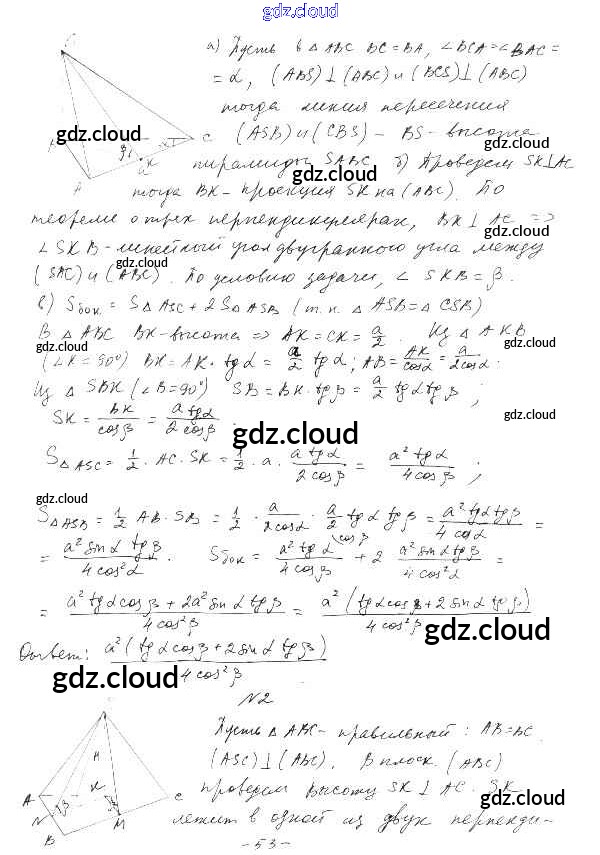 gdz.cloud
а) Пусть в △ ABC BC = BA, ∠BCA = ∠BAC =
= α, (ABS)⊥(ABC) и (BCS)⊥(ABC)
тогда линия пересечения
gdz.cloud
C (ASB) и (CBS) - BS - высота
gdz.cloud
пирамиды SABC. б) Проведем SK⊥AC
тогда BK - проекция SK на (ABC). По
теореме о трех перпендикулярах, BK ⊥ AC =>
∠SKB - линейный угол двугранного угла между
gdz.cloud
(SAC) и (ABC). По условию задачи, ∠ SKB = β.
в) Sбок. = S△ASC + 2S△ASB (т.к. △ ASB = △ CSB)
В △ ABC BK - высота => AK = CK = a/2. Из △ AKB
gdz.cloud gdz.cloud
(∠K = 90°) BK = AK · tg α = a/2 tg α; AB = AK/cos α = a/2cos α.
Из △ SBK (∠B = 90°) SB = BK · tg β = a/2 tg α tg β;
SK = BK/cos β = a tg α/2 cos β.
gdz.cloud gdz.cloud
S△ASC = 1/2 · AC · SK = 1/2 · a · a tg α/2 cos β = a² tg α/4 cos β;
gdz.cloud
S△ASB = 1/2 AB · SB = 1/2 · a/2cos α · a/2 tg α tg β = a² tg α tg β/4 cos α =
= a² sin α tg β/4 cos² α. Sбок = a² tg α/4 cos β + 2 a² sin α tg β/4 cos² α =
gdz.cloud gdz.cloud
= a² tg α cos β + 2a² sin α tg β/4 cos² β = a² (tg α cos β + 2 sin α tg β)/4 cos² β
gdz.cloud
Ответ: a² (tg α cos β + 2 sin α tg β)/4 cos² β
gdz.cloud
N2
Пусть △ ABC - правильный: AB = BC.
gdz.cloud
(ASC)⊥(ABC). В плоск. (ABC)
проведем высоту SK ⊥ AC. SK
gdz.cloud
лежит в одной из двух перпенди-
gdz.cloud
- 53 -